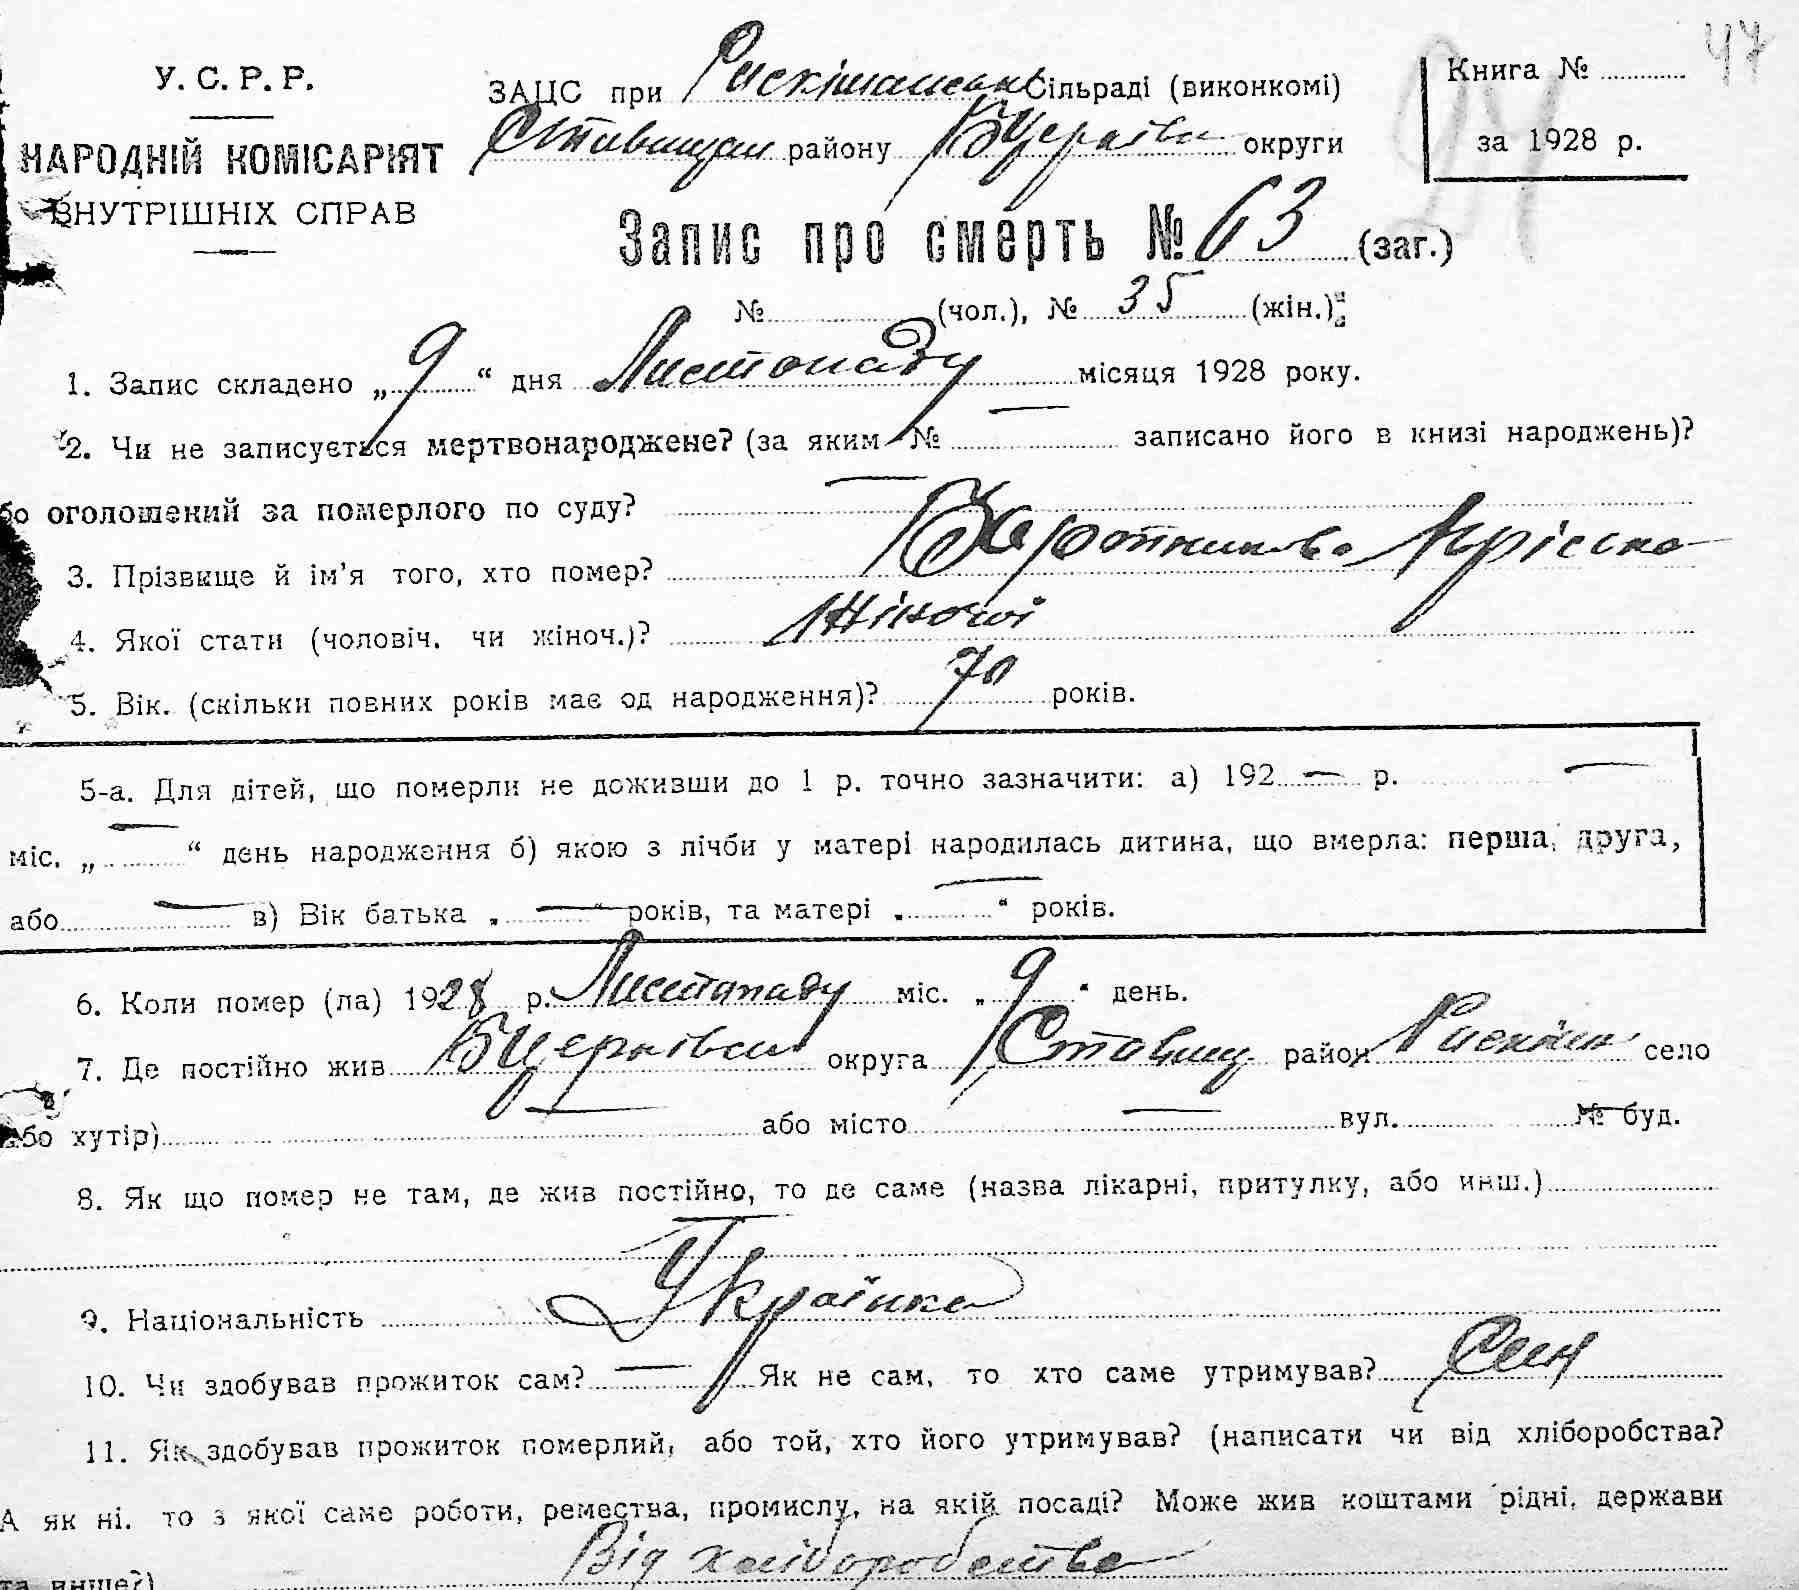 47
У. С. Р. Р.
НАРОДНІЙ КОМІСАРІЯТ
ВНУТРІШНІХ СПРАВ
ЗАЦС при сільраді (виконкомі)
Ставищан району БЦерківс округи
Книга №
за 1928 р.
Запис про смерть № 63 (заг.)
№ (чол.), № 35 (жін.)
1. Запис складено „ 9 “ дня Листопаду місяця 1928 року.
2. Чи не записується мертвонароджене? (за яким № — записано його в книзі народжень)?
бо оголошений за померлого по суду? —
3. Прізвище й ім’я того, хто помер?
4. Якої стати (чоловіч. чи жіноч.)? Жіночої
5. Вік. (скільки повних років має од народження)? 70 років.
5-а. Для дітей, що померли не доживши до 1 р. точно зазначити: а) 192 — р. —
міс. „ — “ день народження б) якою з лічби у матері народилась дитина, що вмерла: перша, друга,
або — в) Вік батька „ — “ років, та матері „ — “ років.
6. Коли помер (ла) 1928 р. Листопаду міс. „ 9 “ день.
7. Де постійно жив БЦерківськ округа Ставищ район село
або хутір) — або місто — вул. № буд.
8. Як що помер не там, де жив постійно, то де саме (назва лікарні, притулку, або инш.)
—
9. Національність Українка
10. Чи здобував прожиток сам? — Як не сам, то хто саме утримував? Син
11. Як здобував прожиток померлий, або той, хто його утримував? (написати чи від хліборобства?
А як ні. то з якої саме роботи, ремества, промислу, на якій посаді? Може жив коштами рідні, держави
та инше?) Від хліборобства